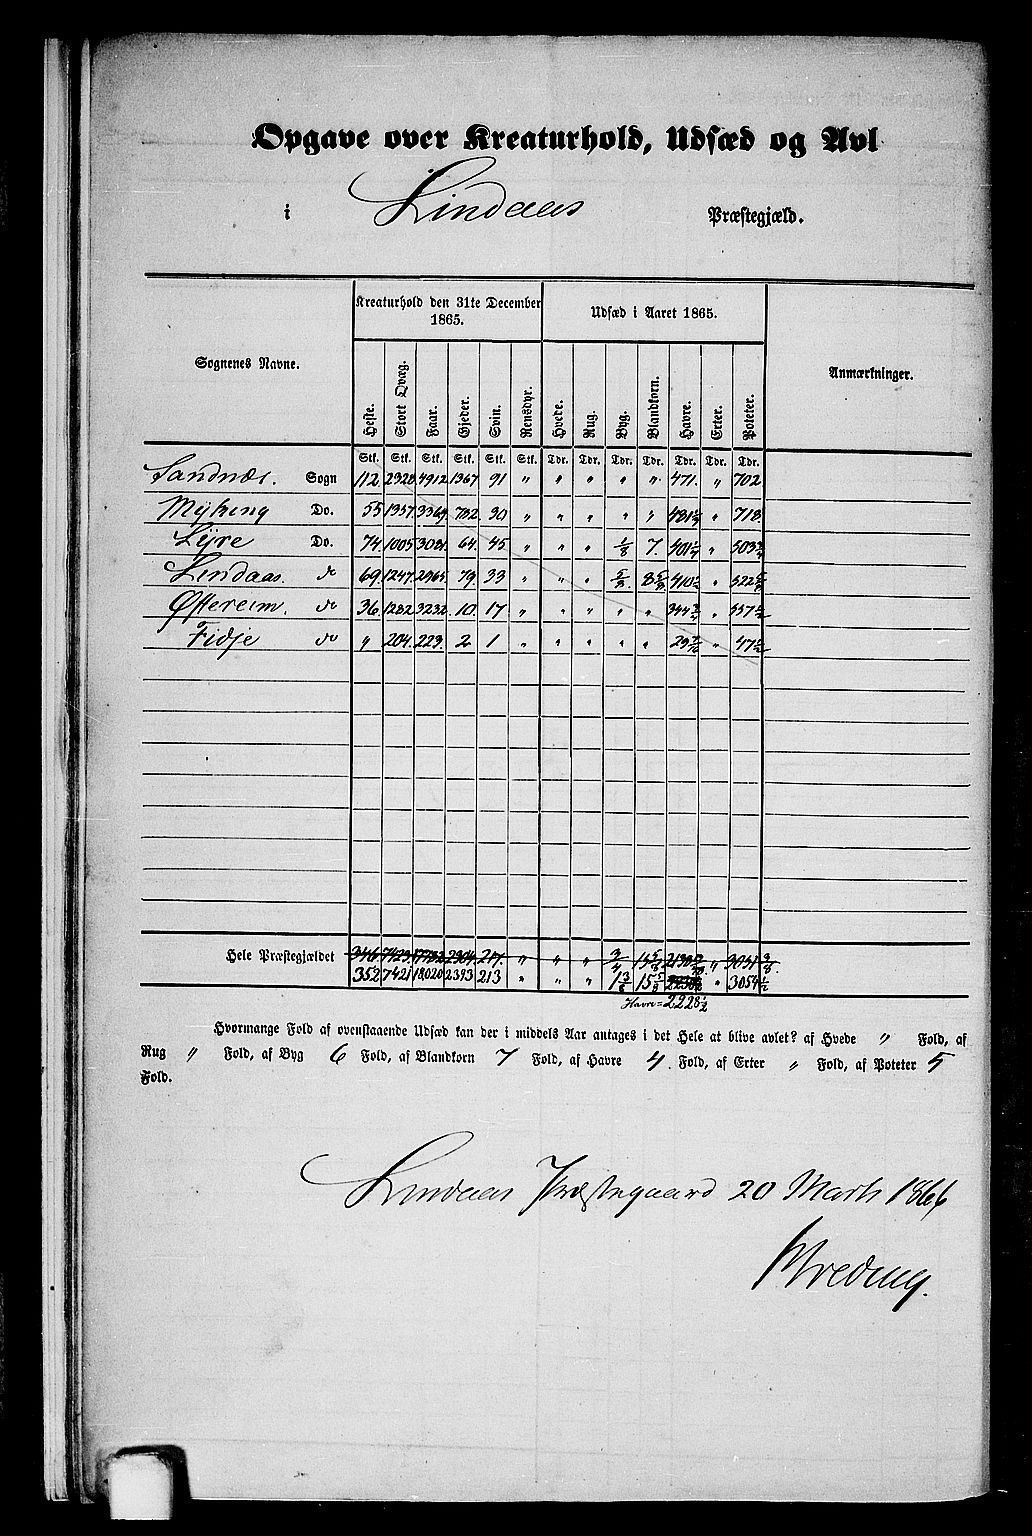 Opgave over Kreaturhold, Udsæd og Avl
i Lindaas Præstegjæld.
Sognenes Navne. Kreaturhold den 31te December 1865. Udsæd i Aaret 1865. Anmærkninger.
Heste. Stort Qvæg. Faar. Gjeder. Svin. Rensdyr. Hvede. Rug. Byg. Blandkorn. Havre. Erter. Poteter.
Stk. Stk. Stk. Stk. Stk. Stk. Tdr. Tdr. Tdr. Tdr. Tdr. Tdr. Tdr.
Sandnæs. Sogn 112 2328 4912 1367 91 " " " " " 471. " 702
Myking Do. 55 1357. 3369. 782 30 " " " " " " 718.
Lyre Do. 74 1005 64. 45 " " " 1/8 7. 401 1/4 " 503 3/4
Lindaas. do 69. 1247. 2965. 79 33 " " " 5/8 8 5/8 410 1/2 " 522 5/8
Østereim. do 36. 3232. 10. 17 " " " " " " 357 1/2
Fidje do " 204. 223. 2 1 " " " " " " 47 1/2
Hele Præstegjældet 346 7423 2304 217. " " " " 3/4 15 5/8 " 3031 3/8.
352 7421 18020 2393 213 " " " 1 3/8 15 5/8 " 3054 1/2
Havre = 2228 1/2
Hvormange Fold af ovenstaaende Udsæd kan der i middels Aar antages i det Hele at blive avlet? af Hvede " Fold, af
Rug " Fold, af Byg 6 Fold, af Blandkorn 7 Fold, af Havre 4. Fold, af Erter " Fold, af Poteter 5
Fold.
Lindaas Præstegaard 20 Marts 1866